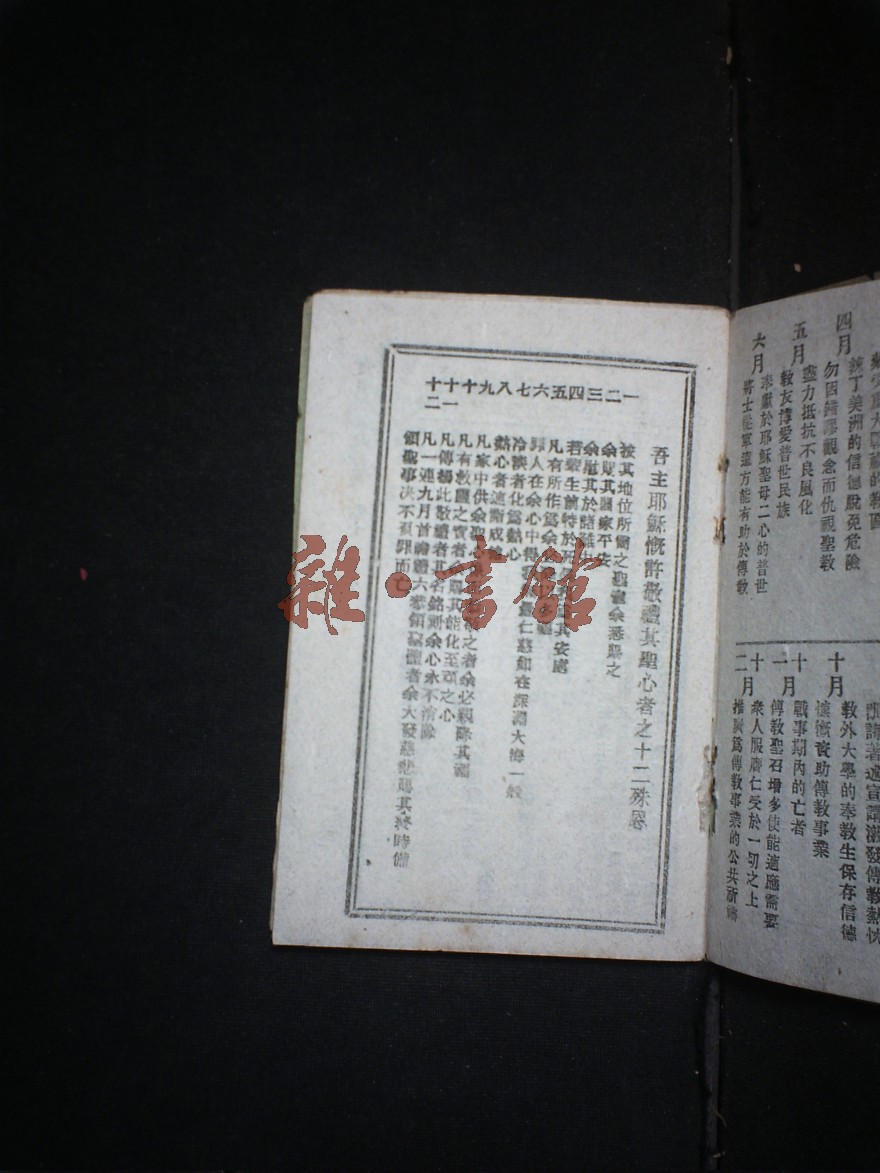 四月
鐵丁美洲的信德脫免危險
勿因錯謬觀念而仇視聖教
五月
盡力抵抗不良風化
教友博愛普世民族
六月
奉獻於耶穌聖母二心的普世
將士從軍遠方能有助於傳教
著述宣講激發傳教熱忱
十月
教外大學的奉教生保存信德
慷慨資助傳教事業
十一月
戰事期內的亡者
傳教聖召增多使能適應需要
十二月
眾人服膺仁愛於一切之上
推廣為傳教事業的公共祈禱
吾主耶穌慨許敬禮其聖心者之十二殊恩
一 按其地位所需之聖寵余悉賜之
二 余賜其國家平安
三 余慰其於諸
四 若輩生前特於死 其安處
五 凡有所作為余
六 罪人在余心中得 仁慈如在深淵大海一般
七 冷淡者化為熱心
八 熱心者速臍成
九 凡家中供余聖心 之者余必親降其福
十 凡有救靈之責者 賜其能化至頑之心
十一 凡傳揚此敬禮者其名銘刻余心永不消除
十二 凡一連九月首瞻禮六恭領聖體者余大發慈悲賜其終時備
領聖事決不至罪而亡
雜·書館